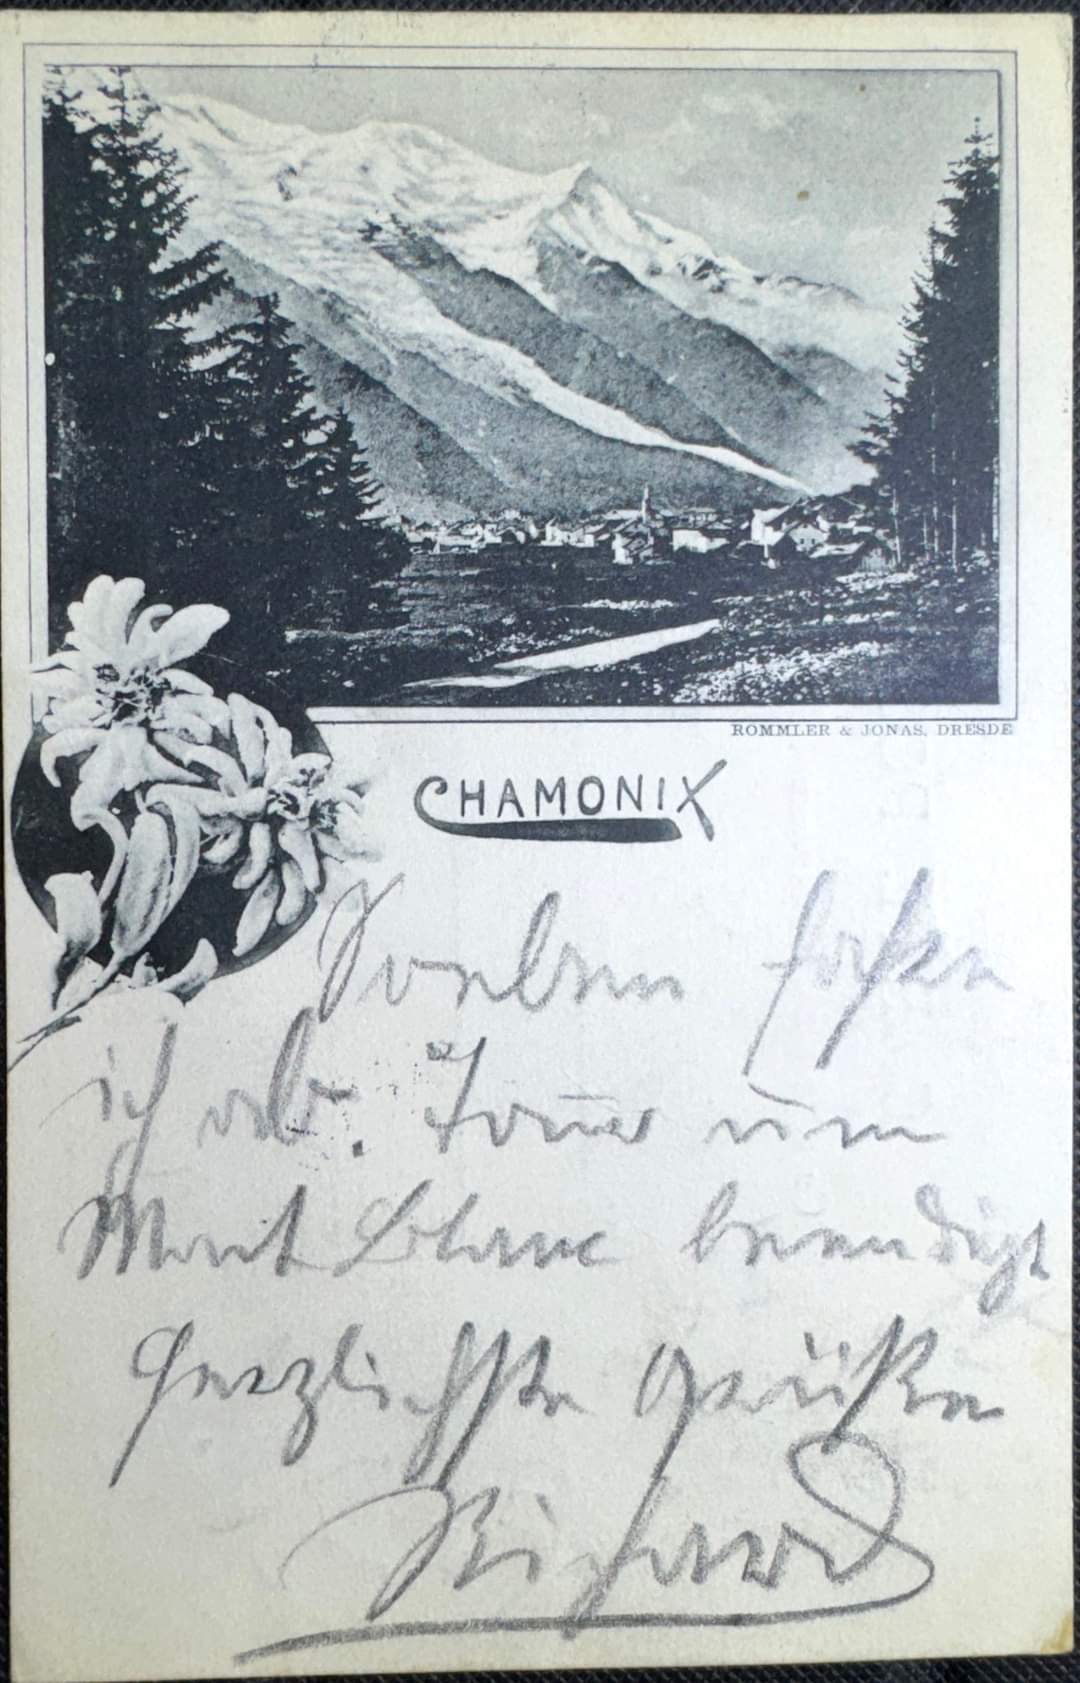 ROMMLER & JONAS, DRESDE
CHAMONIX
Soeben fahre
ich ab. Tour um
Mont Blanc beendigt
Herzlichste Grüße
Richard